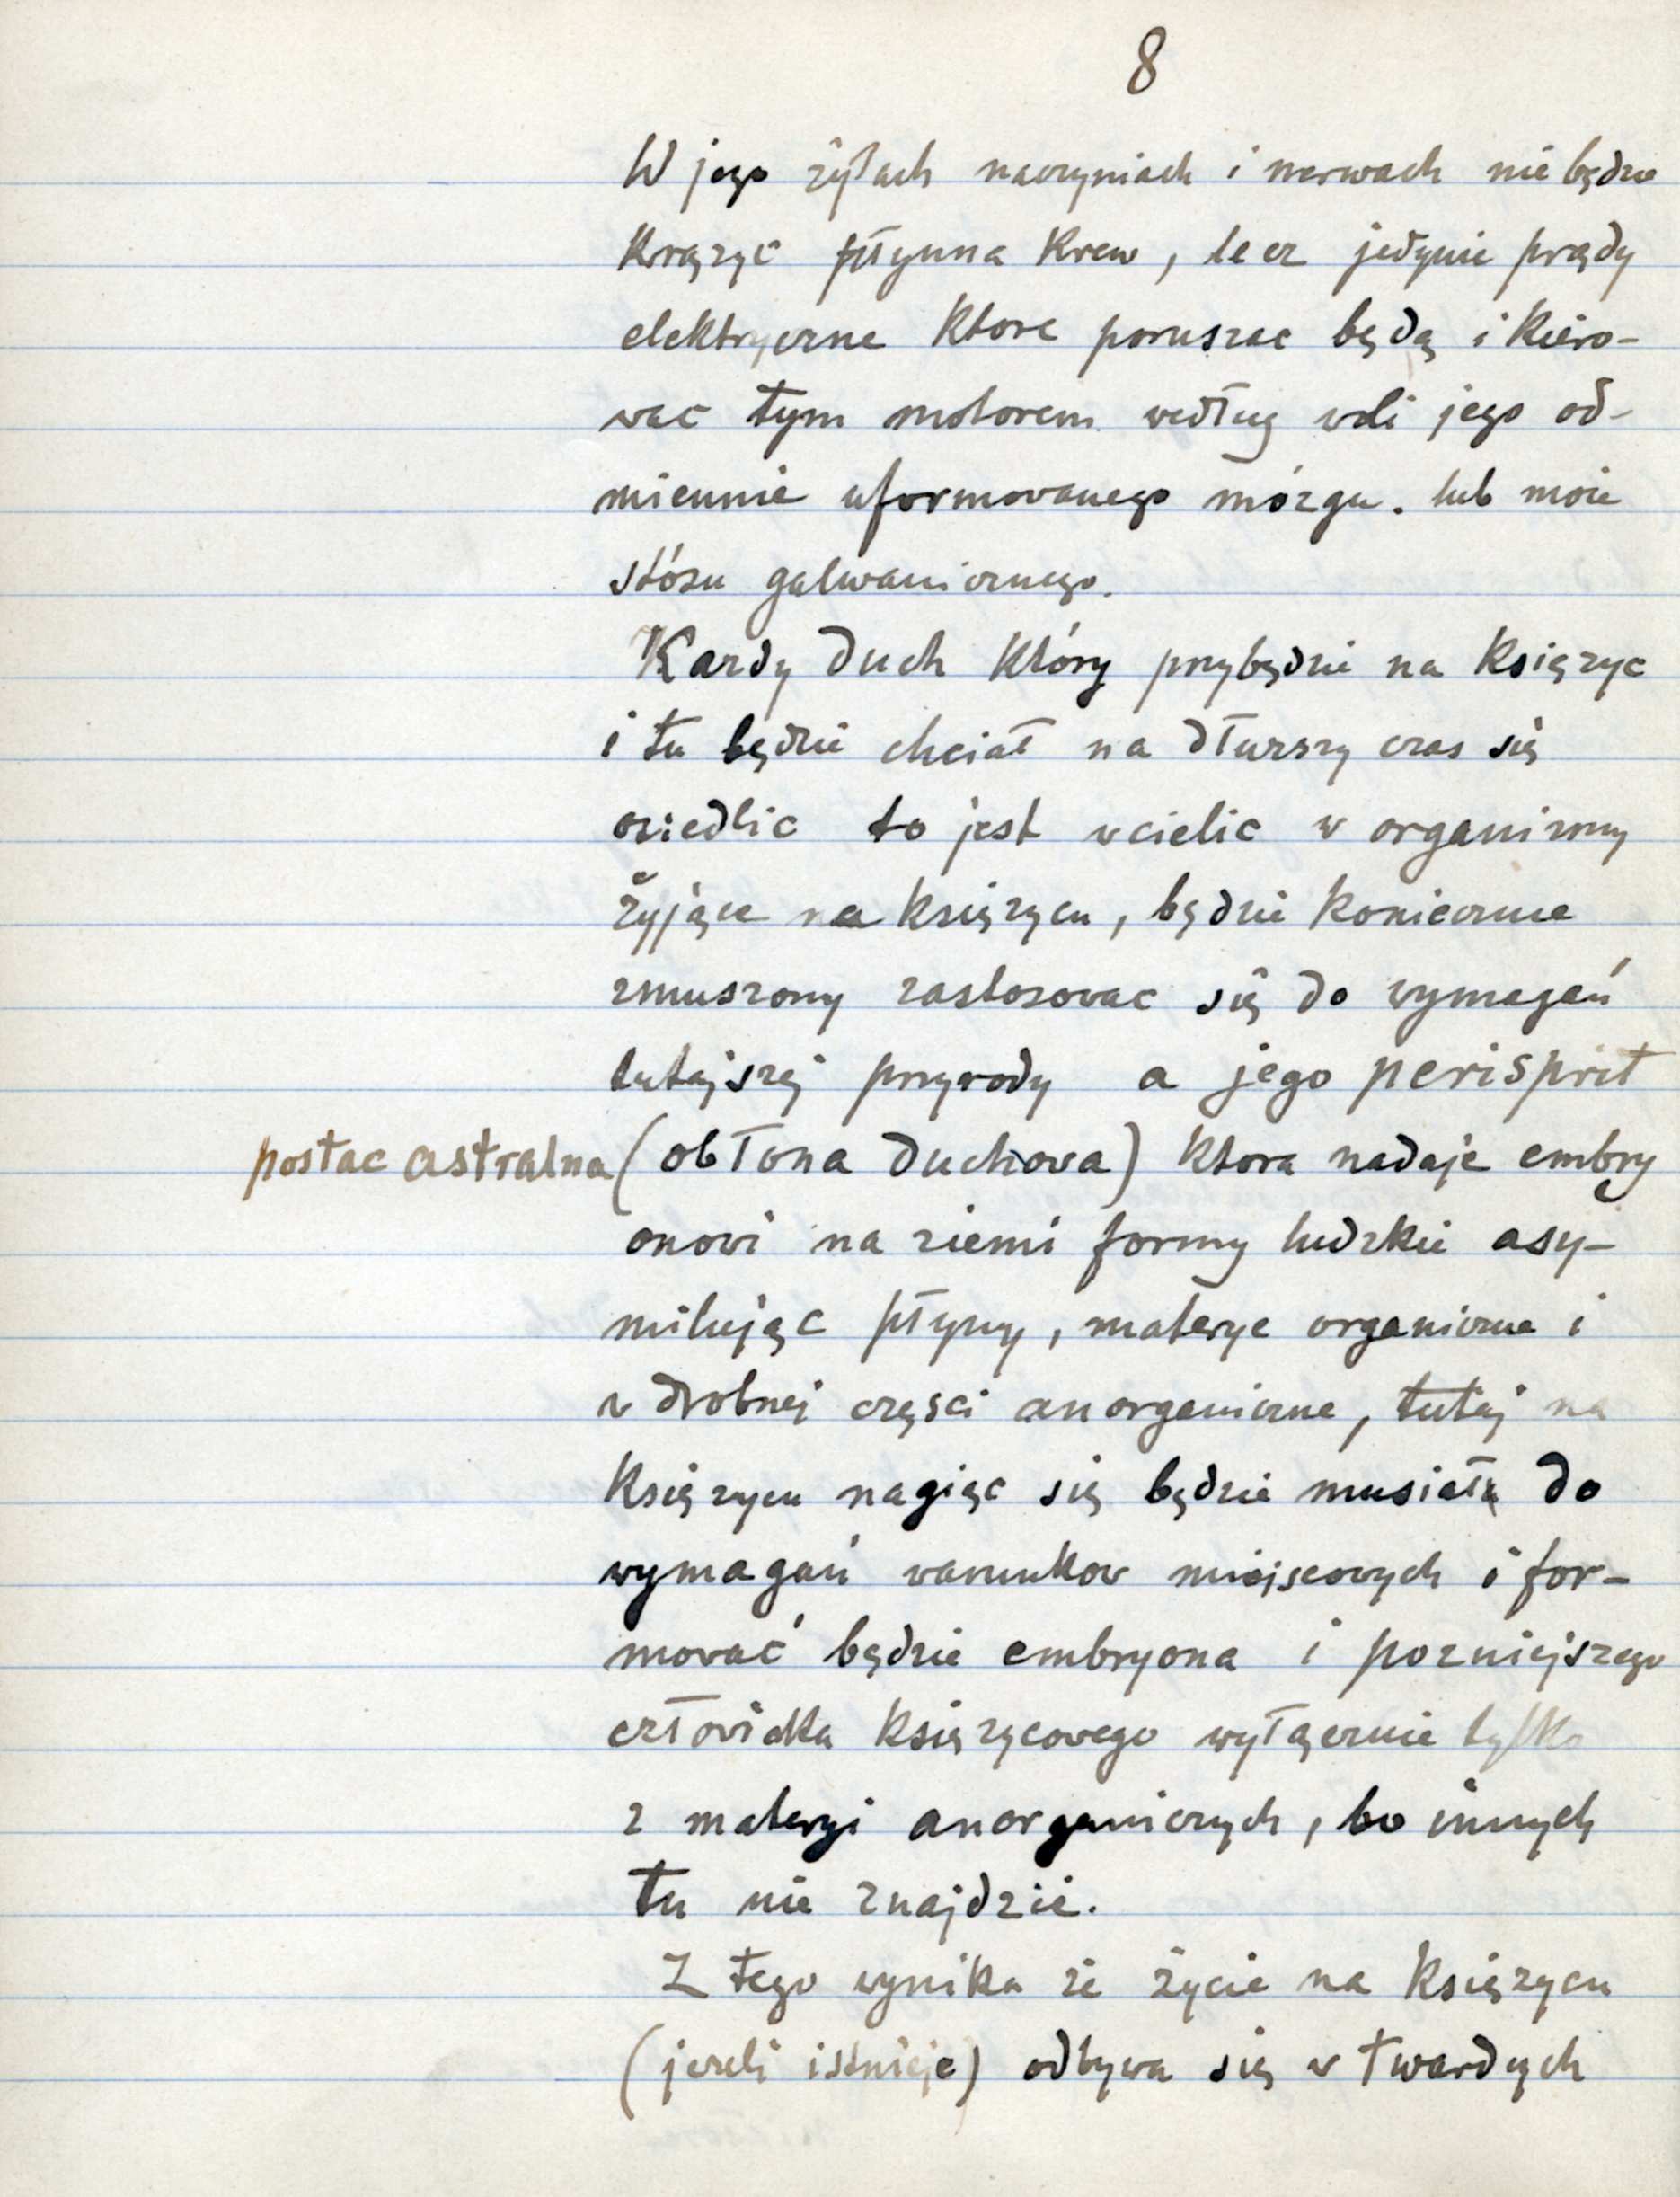 8
W jego żyłach naczyniach i nerwach nie będzie
krązyc płynna krew, lecz jedynie prądy
elektryczne ktore poruszac będą i kiero-
wac tym motorem według woli jego od-
miennie uformowanego mózgu. lub może
stósu galwanicznego.
Kazdy duch który przybędzie na księzyc
i tu będzie chciał na dłuzszy czas się
osiedlic to jest wcielic w organizmy
żyjące na księzycu, będzie koniecznie
zmuszony zastosowac się do wymagań
tutejszej przyrody a jego perisprit
postac astralna (obłona duchowa) ktora nadaje embry
onowi na ziemi formy ludzkie asy-
milując płyny, materye organiczne i
w drobnej częsci anorganiczne, tutaj na
księzycu nagiąc się będzie musiała do
wymagań warunkow miejscowych i for-
mować będzie embryona i pozniejszego
człowieka księzycowego wyłącznie tylko
z materyi anorganicznych, bo innych
tu nie znajdzie.
Z tego wynika że życie na księzycu
(jezeli istnieje) odbywa się w twardych